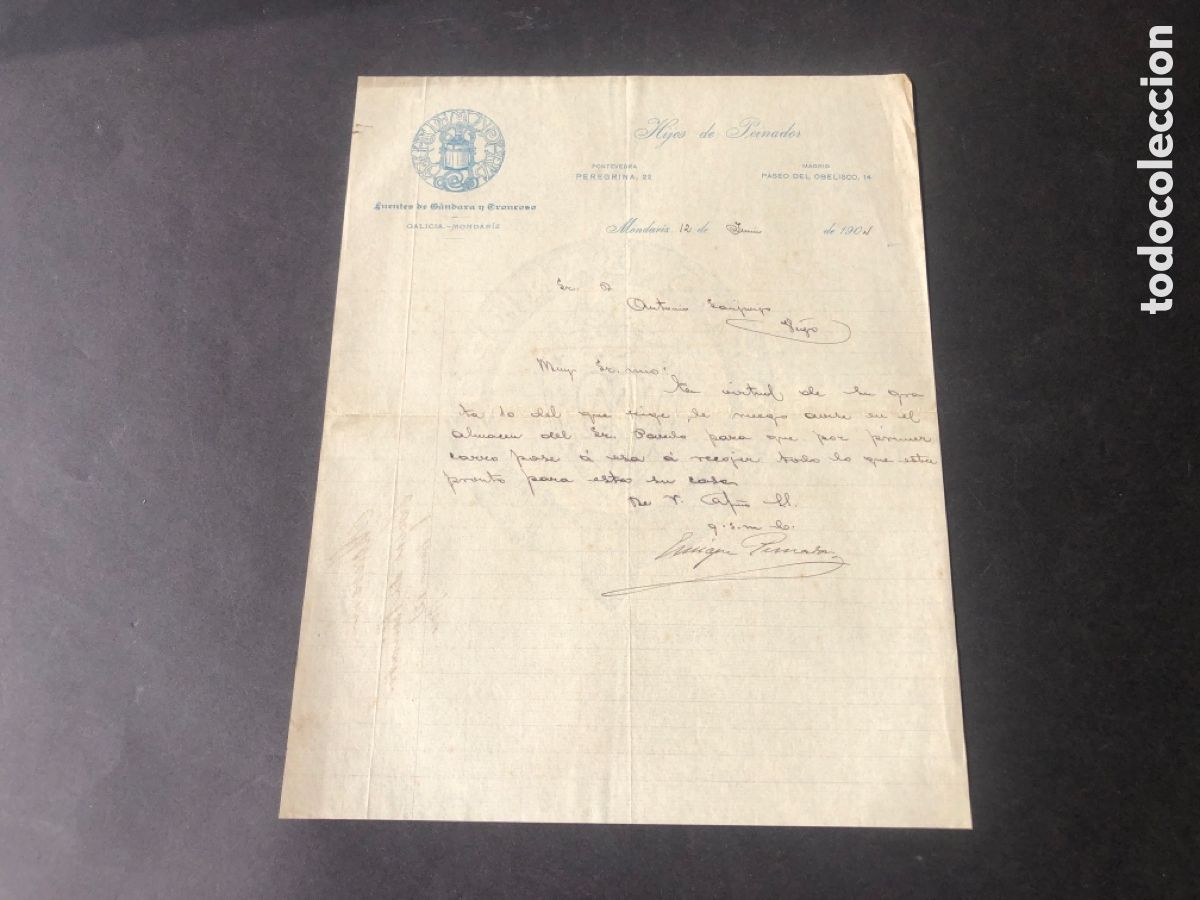 Hijos de Peinador
PONTEVEDRA
PEREGRINA, 22
MADRID
PASEO DEL OBELISCO, 14
Fuentes de Gándara y Troncoso
GALICIA.-MONDARÍZ
Mondariz 12 de de 1904
Sr. D
Antonio
Vigo
Muy Sr. mio:
En virtud de su gra
ta 10 del que rige, le ruego avise en el
almacen del Sr. Pardo para que por primer
carro pase á esa á recojer todo lo que esta
pronto para esta su casa
De V. af
q. s. m. b.
Enrique Peinador
todocoleccion